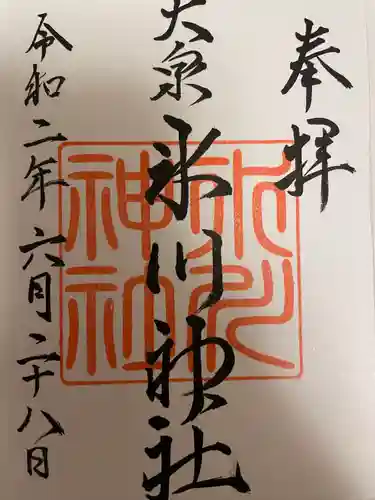 奉拝
大泉氷川神社
氷川神社
令和二年六月二十八日